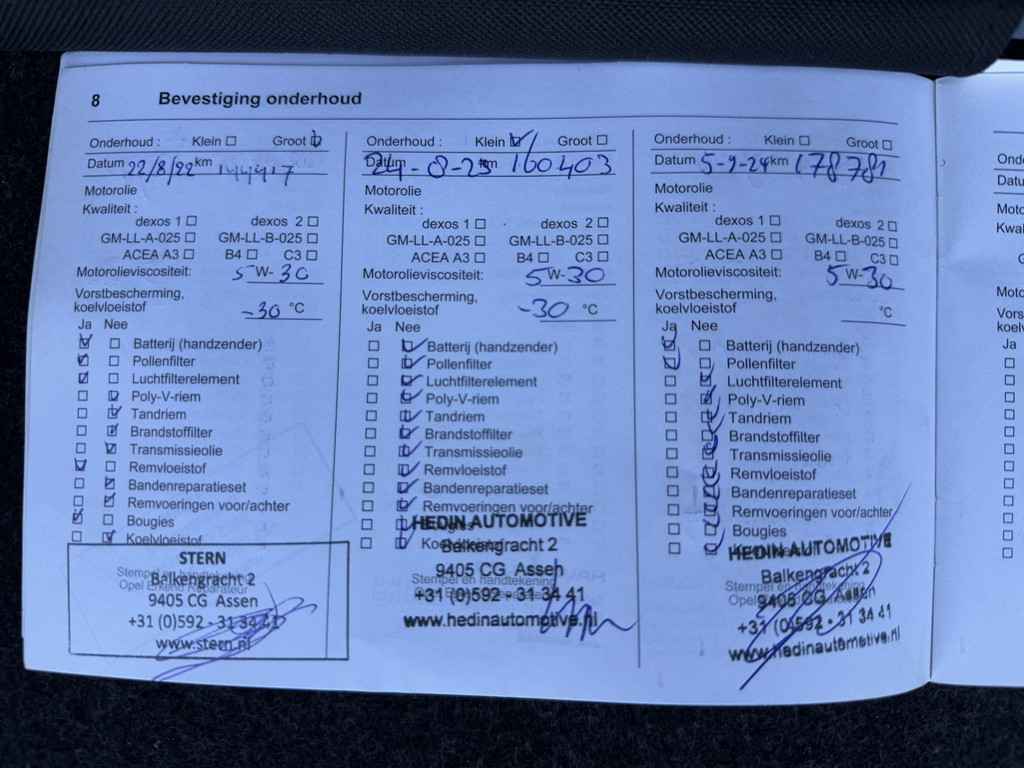 8 Bevestiging onderhoud
Onderhoud : Klein ☐ Groot ☑
Datum 22/8/22 km 144417
Motorolie
Kwaliteit :
dexos 1 ☐ dexos 2 ☐
GM-LL-A-025 ☐ GM-LL-B-025 ☐
ACEA A3 ☐ B4 ☐ C3 ☐
Motorolieviscositeit: 5W-30
Vorstbescherming,
koelvloeistof -30 °C
Ja Nee
☑ ☐ Batterij (handzender)
☑ ☐ Pollenfilter
☑ ☐ Luchtfilterelement
☐ ☑ Poly-V-riem
☐ ☑ Tandriem
☐ ☑ Brandstoffilter
☐ ☑ Transmissieolie
☑ ☐ Remvloeistof
☐ ☑ Bandenreparatieset
☐ ☑ Remvoeringen voor/achter
☑ ☐ Bougies
☐ ☑ Koelvloeistof
STERN
Balkengracht 2
9405 CG Assen
+31 (0)592 - 31 34 41
www.stern.nl
Stempel en handtekening
Opel Erkend Reparateur
Onderhoud : Klein ☑ Groot ☐
Datum 24-8-23 km 160403
Motorolie
Kwaliteit :
dexos 1 ☐ dexos 2 ☐
GM-LL-A-025 ☐ GM-LL-B-025 ☐
ACEA A3 ☐ B4 ☐ C3 ☐
Motorolieviscositeit: 5W-30
Vorstbescherming,
koelvloeistof -30 °C
Ja Nee
☐ ☑ Batterij (handzender)
☐ ☑ Pollenfilter
☐ ☑ Luchtfilterelement
☐ ☑ Poly-V-riem
☐ ☑ Tandriem
☐ ☑ Brandstoffilter
☐ ☑ Transmissieolie
☐ ☑ Remvloeistof
☐ ☑ Bandenreparatieset
☐ ☑ Remvoeringen voor/achter
☐ ☑ Bougies
HEDIN AUTOMOTIVE
Balkengracht 2
9405 CG Assen
Stempel en handtekening
+31 (0)592 - 31 34 41
www.hedinautomotive.nl
Onderhoud : Klein ☐ Groot ☐
Datum 5-9-24 km 178781
Motorolie
Kwaliteit :
dexos 1 ☐ dexos 2 ☐
GM-LL-A-025 ☐ GM-LL-B-025 ☐
ACEA A3 ☐ B4 ☐ C3 ☐
Motorolieviscositeit: 5W-30
Vorstbescherming,
koelvloeistof °C
Ja Nee
☑ ☐ Batterij (handzender)
☑ ☐ Pollenfilter
☐ ☑ Luchtfilterelement
☐ ☑ Poly-V-riem
☐ ☑ Tandriem
☐ ☑ Brandstoffilter
☐ ☑ Transmissieolie
☐ ☑ Remvloeistof
☐ ☑ Bandenreparatieset
☐ ☑ Remvoeringen voor/achter
☐ ☑ Bougies
HEDIN AUTOMOTIVE
Balkengracht 2
Stempel en handtekening
9405 CG Assen
+31 (0)592 - 31 34 41
www.hedinautomotive.nl
Ja